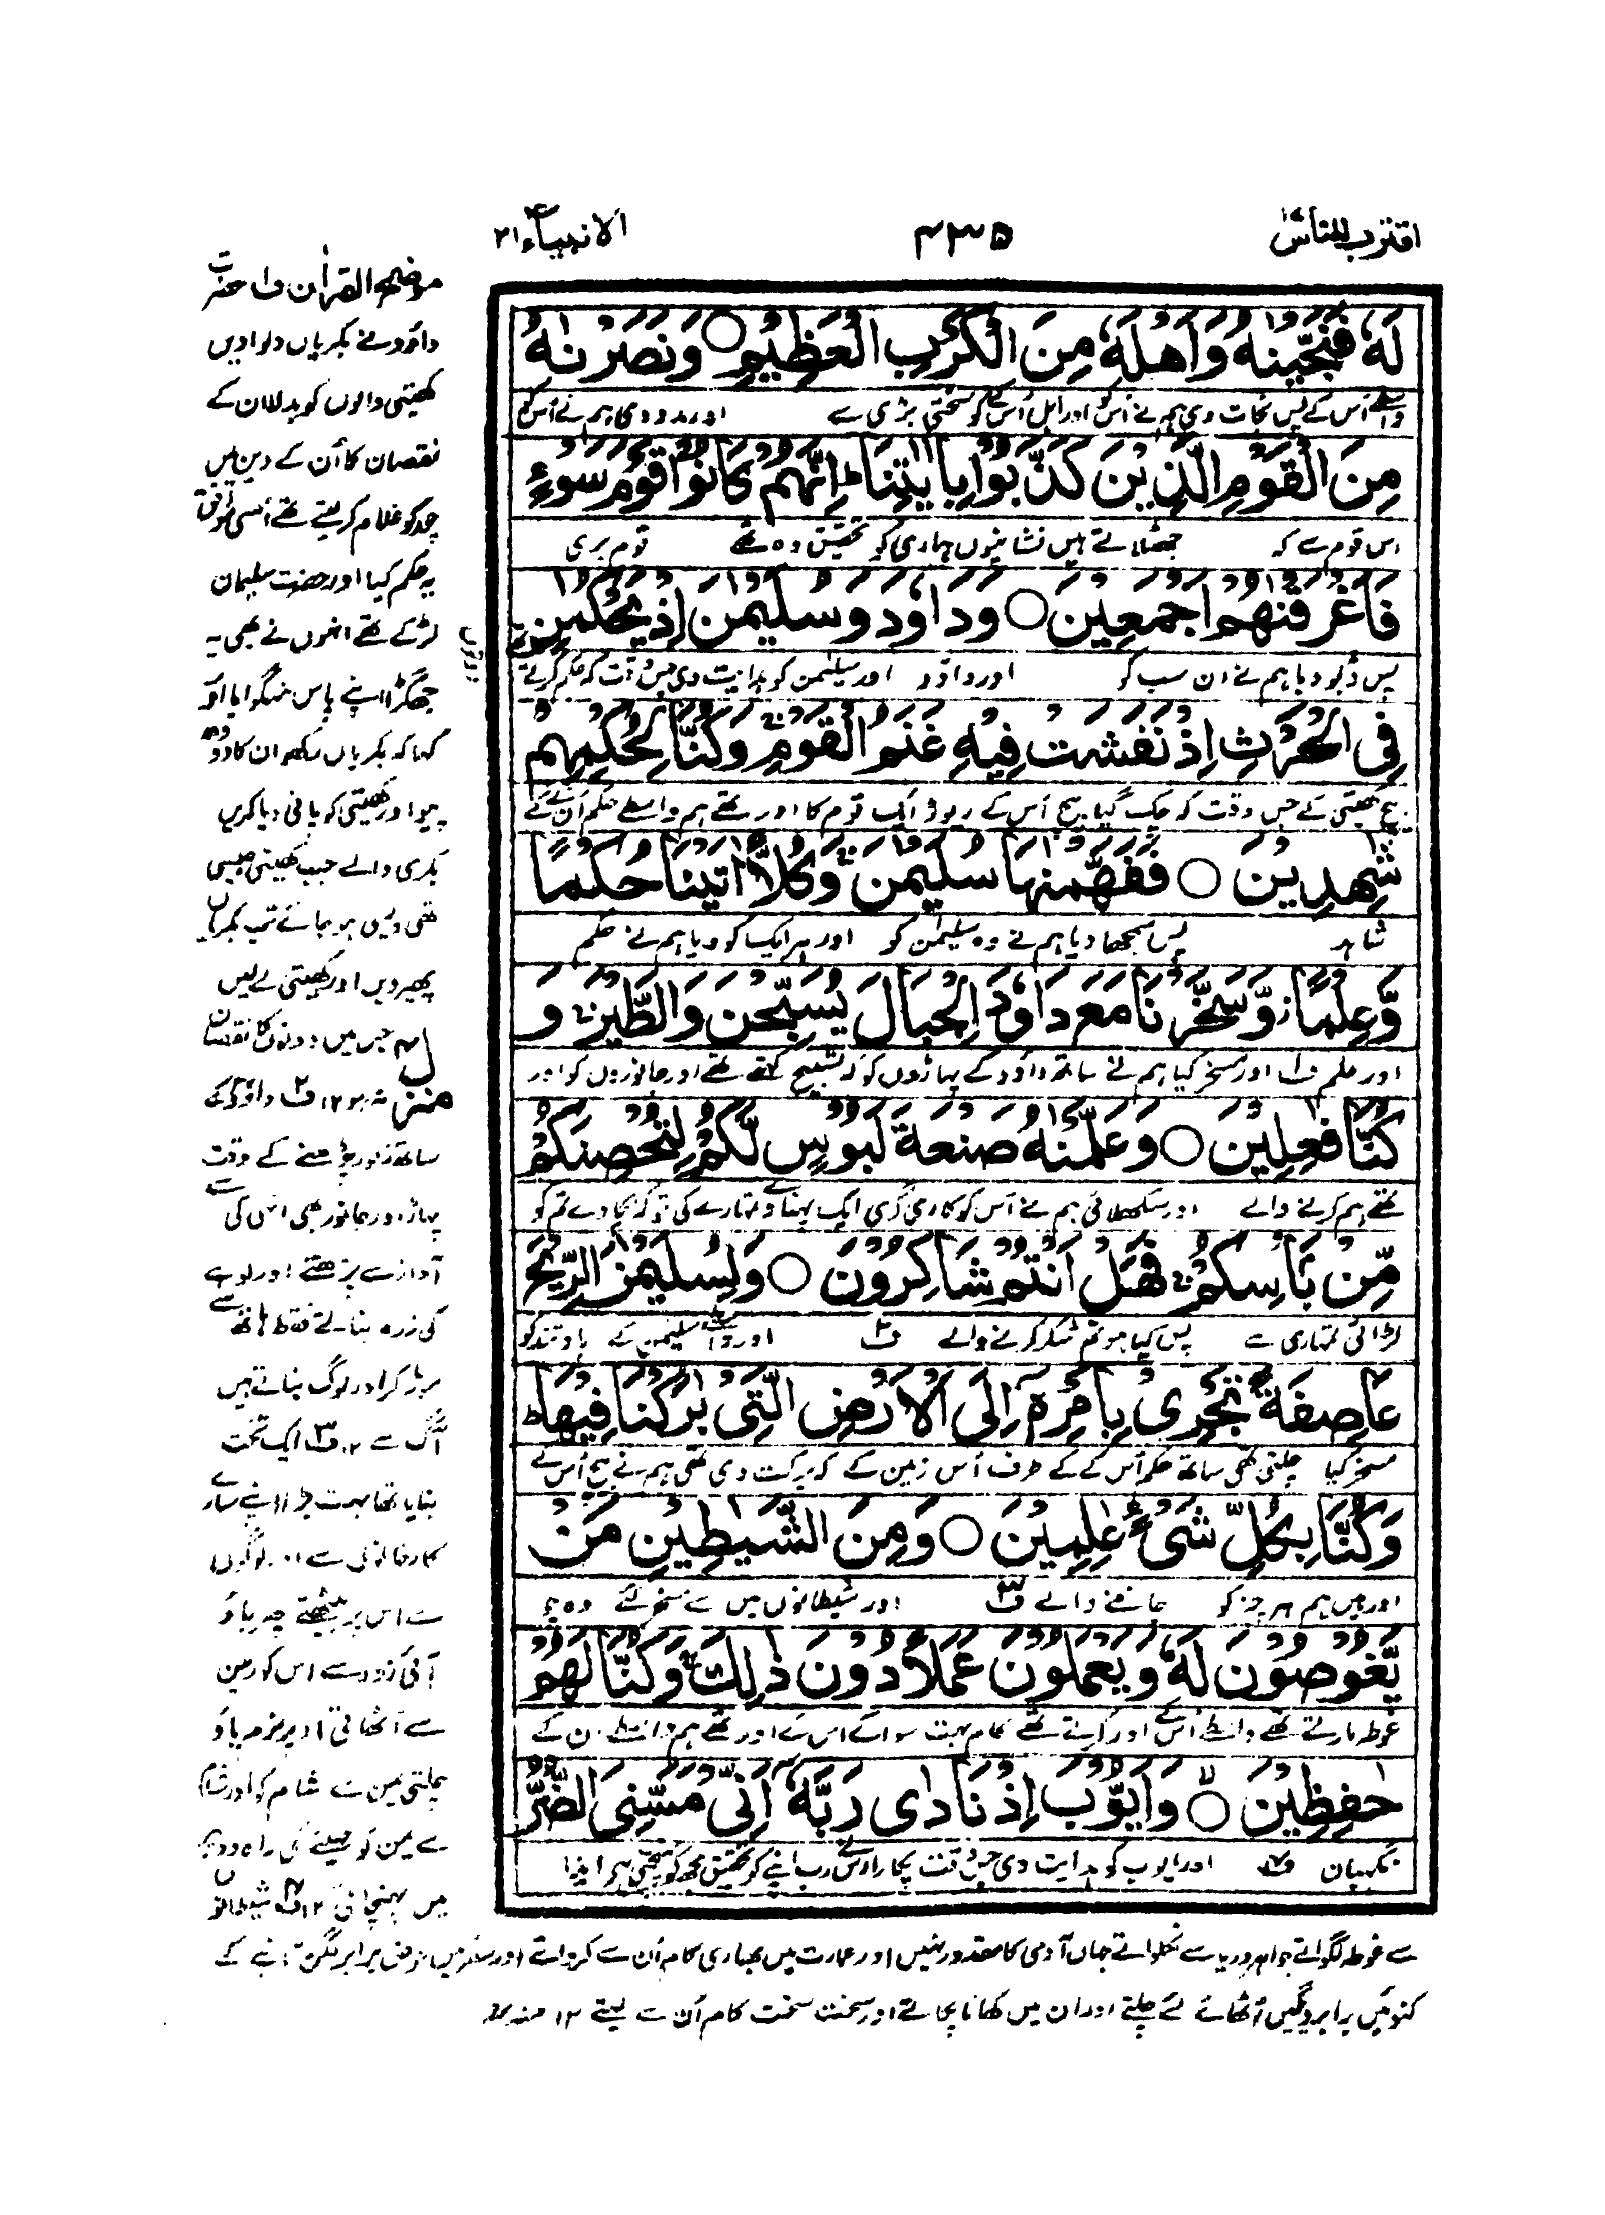 اقترب للناس ١٧
٤٣٥
الانبیاء ٢١
لَهٗ فَنَجَّيْنٰهُ وَاَهْلَهٗ مِنَ الْكَرْبِ الْعَظِيْمِ ○ وَنَصَرْنٰهُ
واسطے اُس کے پس نجات دی ہم نے اُس کو اور اہل اُس کے کو سختی بڑی سے اور مدد دی ہم نے اُس کو
مِنَ الْقَوْمِ الَّذِيْنَ كَذَّبُوْا بِاٰيٰتِنَا ؕ اِنَّهُمْ كَانُوْا قَوْمَ سَوْءٍ
اس قوم سے کہ جھٹلاتے ہیں نشانیوں ہماری کو تحقیق وہ تھے قوم بری
فَاَغْرَقْنٰهُمْ اَجْمَعِيْنَ ○ وَدَاوٗدَ وَسُلَيْمٰنَ اِذْ يَحْكُمٰنِ
پس ڈبو دیا ہم نے ان سب کو اور داؤد اور سلیمٰن کو ہدایت دی جس وقت کہ حکم کرتے
فِى الْحَرْثِ اِذْ نَفَشَتْ فِيْهِ غَنَمُ الْقَوْمِ ۚ وَكُنَّا لِحُكْمِهِمْ
بیچ کھیتی کے جس وقت کہ چک گیا بیچ اُس کے ریوڑ ایک قوم کا اور تھے ہم واسطے حکم اُن کے
شٰهِدِيْنَ ○ فَفَهَّمْنٰهَا سُلَيْمٰنَ ۚ وَكُلًّا اٰتَيْنَا حُكْمًا
شاہد پس سمجھا دیا ہم نے وہ سلیمٰن کو اور ہر ایک کو دیا ہم نے حکم
وَّعِلْمًا ز وَّسَخَّرْنَا مَعَ دَاوٗدَ الْجِبَالَ يُسَبِّحْنَ وَالطَّيْرَ ؕ وَ
اور علم ف١ اور مسخر کیا ہم نے ساتھ داؤد کے پہاڑوں کو کہ تسبیح کہتے تھے اور جانوروں کو اور
كُنَّا فٰعِلِيْنَ ○ وَعَلَّمْنٰهُ صَنْعَةَ لَبُوْسٍ لَّكُمْ لِتُحْصِنَكُمْ
تھے ہم کرنے والے اور سکھلائی ہم نے اُس کو کاریگری ایک پہناوے تمہارے کی تو کہ بچاوے تم کو
مِّنْۢ بَاْسِكُمْ ۚ فَهَلْ اَنْتُمْ شَاكِرُوْنَ ○ وَلِسُلَيْمٰنَ الرِّيْحَ
لڑائی تمہاری سے پس کیا ہو تم شکر کرنے والے ف٢ اور واسطے سلیمٰن کے باؤ تند کو
عَاصِفَةً تَجْرِىْ بِاَمْرِهٖۤ اِلَى الْاَرْضِ الَّتِىْ بٰرَكْنَا فِيْهَا ؕ
مسخر کیا چلتی تھی ساتھ حکم اُس کے کے طرف اُس زمین کے کہ برکت دی تھی ہم نے بیچ اُس کے
وَكُنَّا بِكُلِّ شَىْءٍ عٰلِمِيْنَ ○ وَمِنَ الشَّيٰطِيْنِ مَنْ
اور ہیں ہم ہر چیز کو جاننے والے ف٣ اور شیطانوں میں سے مسخر کئے وہ جو
يَّغُوْصُوْنَ لَهٗ وَيَعْمَلُوْنَ عَمَلًا دُوْنَ ذٰلِكَ ۚ وَكُنَّا لَهُمْ
غوطہ مارتے تھے واسطے اُس کے اور کرتے تھے کام بہت سوائے اس کے اور تھے ہم واسطے ان کے
حٰفِظِيْنَ ○ وَاَيُّوْبَ اِذْ نَادٰى رَبَّهٗۤ اَنِّىْ مَسَّنِىَ الضُّرُّ
نگہبان ف٤ اور ایوب کو ہدایت دی جس وقت پکارا اس نے رب اپنے کو تحقیق مجھ کو پہنچی ہے ایذا
موضح القرآن ف١ حضرت
داؤد نے بکریاں دلوا دیں
کھیتی والوں کو بدلا ان کے
نقصان کا اُن کے دین میں
چور کو غلام کر لیتے تھے اُسی موافق
یہ حکم کیا اور حضرت سلیمان
لڑکے تھے انہوں نے بھی یہ
جھگڑا اپنے پاس منگوایا اور
کہا کہ بکریاں رکھو ان کا دودھ
پیو اور کھیتی کو پانی دیا کریں
بکری والے جب کھیتی جیسی
تھی ویسی ہو جائے تب بکریاں
پھیر دیں اور کھیتی لے لیں
اس میں دونوں کا نقصان
نہ ہو ١٢ ف٢ داؤد کے
منزل ٤
ساتھ زبور پڑھنے کے وقت
پہاڑ اور جانور بھی انہی کی سے
آواز سے پڑھتے اور لوہے
کی زرہ بناتے فقط ہاتھ سے
موڑ کر اور لوگ بناتے ہیں
آگ سے ١٢ ف٣ ایک تخت
بنایا تھا بہت بڑا اپنے سارے
کارخانوں سے اور لوگوں
سے اس پر بیٹھتے پھر باؤ
آتی زور سے اس کو زمین
سے اُٹھاتی اوپر نرم باؤ
چلتی یمن سے شام کو اور شام
سے یمن کو مہینے کی راہ دوپہر
میں پہنچاتی ١٢ ف٤ شیطانوں
سے غوطہ لگواتے جواہر دریا سے نکلواتے جہاں آدمی کا مقدور نہیں اور عمارت میں بھاری کام اُن سے کرواتے اور سفر میں حوض برابر لگن تانبے کے
کنوئیں برابر دیگیں اُٹھائے لئے چلتے اور ان میں کھانا پکاتے اور سخت سخت کام اُن سے لیتے ١٢ منہ رح